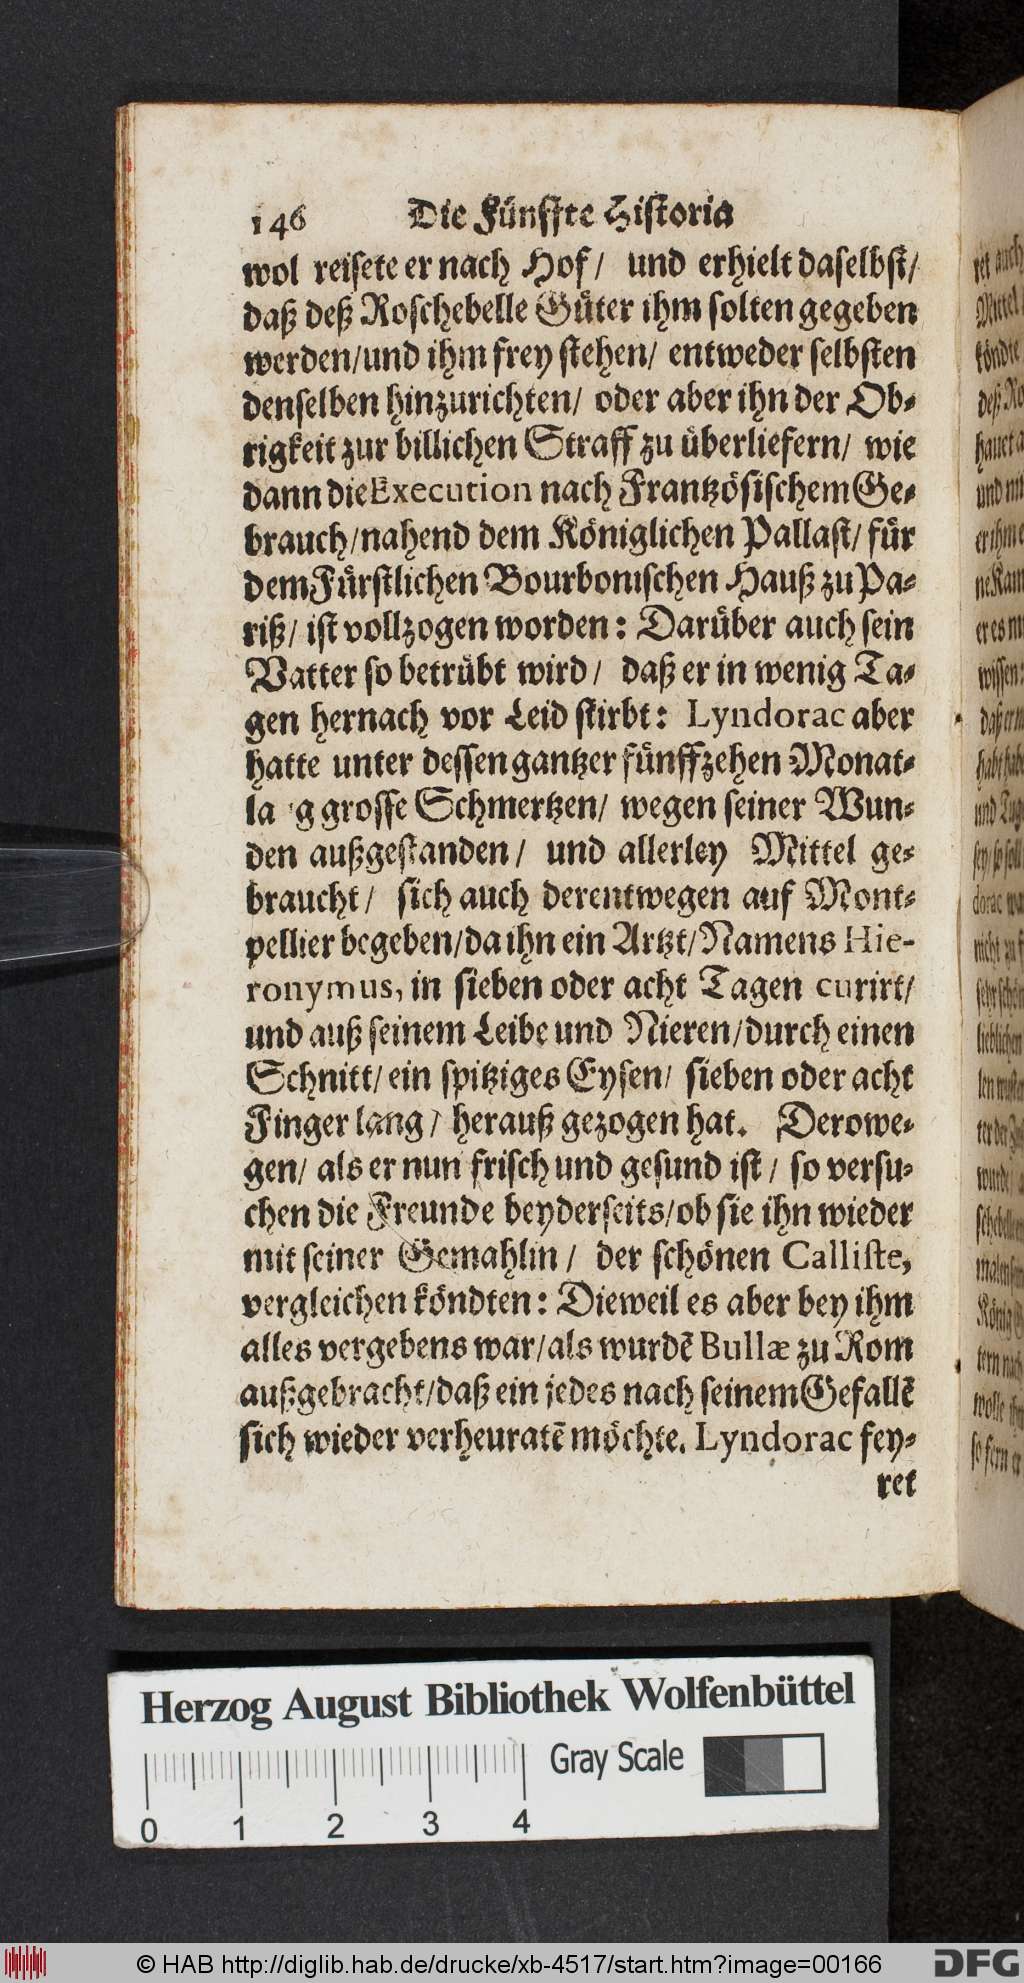 146 Die Fünffte Historia
wol reisete er nach Hof/ und erhielt daselbst/
daß deß Roschebelle Güter ihm solten gegeben
werden/und ihm frey stehen/ entweder selbsten
denselben hinzurichten/ oder aber ihn der Ob-
rigkeit zur billichen Straff zu überliefern/ wie
dann die Execution nach Frantzösischem Ge-
brauch/nahend dem Königlichen Pallast/ für
dem Fürstlichen Bourbonischen Hauß zu Pa-
riß/ ist vollzogen worden: Darüber auch sein
Vatter so betrübt wird/ daß er in wenig Ta-
gen hernach vor Leid stirbt: Lyndorac aber
hatte unter dessen gantzer fünffzehen Monat-
la g grosse Schmertzen/ wegen seiner Wun-
den außgestanden/ und allerley Mittel ge-
braucht/ sich auch derentwegen auf Mont-
pellier begeben/da ihn ein Artzt/Namens Hie-
ronymus, in sieben oder acht Tagen curirt/
und auß seinem Leibe und Nieren/durch einen
Schnitt/ein spitziges Eysen/ sieben oder acht
Finger lang/ herauß gezogen hat. Derowe-
gen/ als er nun frisch und gesund ist/ so versu-
chen die Freunde beyderseits/ob sie ihn wieder
mit seiner Gemahlin/ der schönen Calliste,
vergleichen köndten: Dieweil es aber bey ihm
alles vergebens war/als wurdẽ Bullæ zu Rom
außgebracht/daß ein jedes nach seinem Gefallẽ
sich wieder verheuratẽ möchte. Lyndorac fey-
ret
Herzog August Bibliothek Wolfenbüttel
Gray Scale
0 1 2 3 4
© HAB http://diglib.hab.de/drucke/xb-4517/start.htm?image=00166
DFG